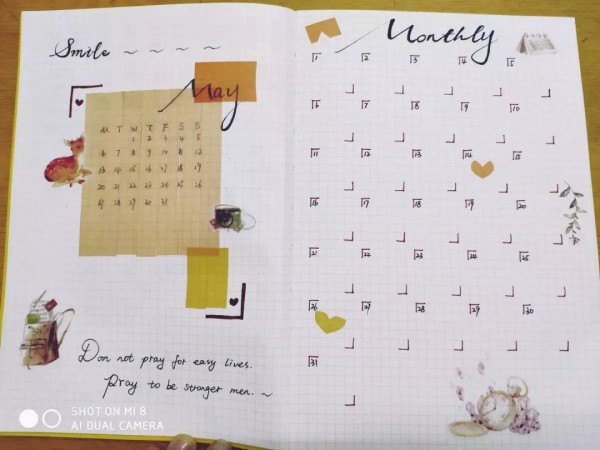 Smile ~ ~ ~ ~
May
M T W T F S S
1 2 3 4 5
6 7 8 9 10 11 12
13 14 15 16 17 18 19
20 21 22 23 24 25 26
27 28 29 30 31
Don not pray for easy lives.
Pray to be stronger men. ~
SHOT ON MI 8
AI DUAL CAMERA
Monthly
1 2 3 4 5
6 7 8 9 10
11 12 13 14 15
16 17 18 19 20
21 22 23 24 25
26 27 28 29 30
31